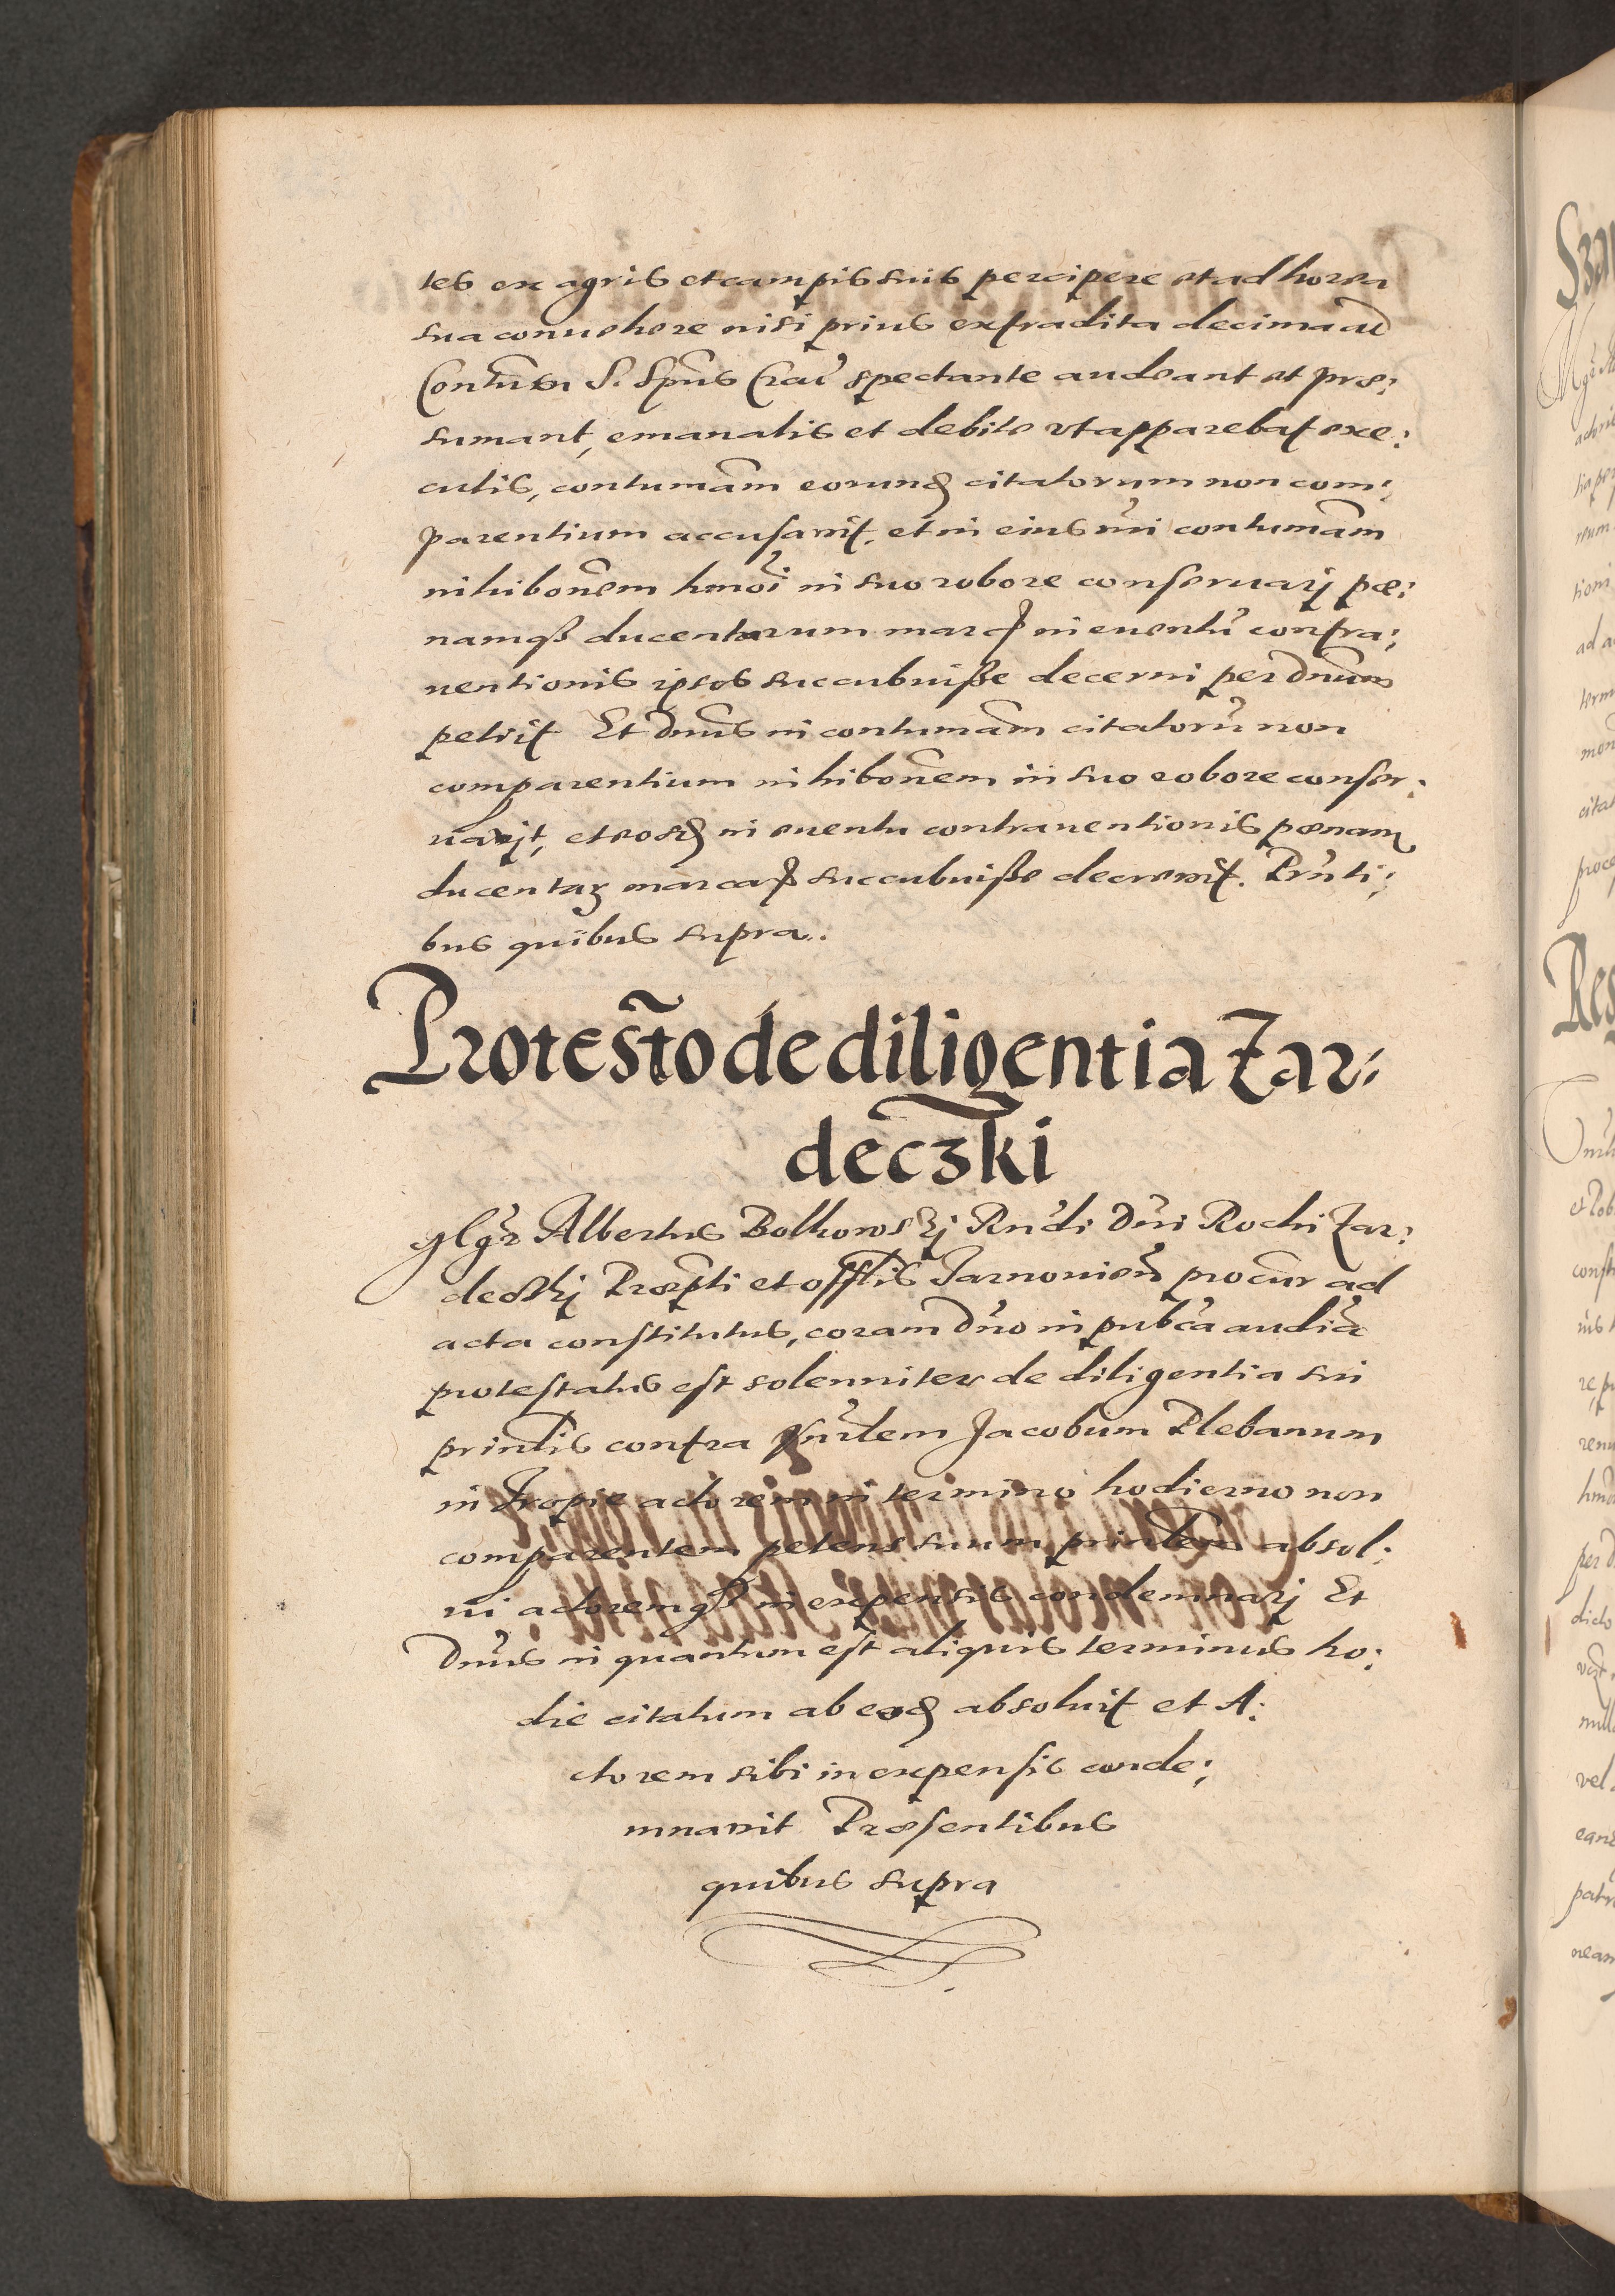 tes ex agris et campis suis percipere et ad horrea
sua conuehere nisi prius extradita decima ad
Contum̃ S. Spũs Crac̃ spectante audeant et præ:
sumant, emanatis et debite vt apparebat exe:
cutis, contumãm eorund citatorum non com:
parentium accusauit, et in eius mi contumãm
inhibonẽm hmõi in suo robore conseruarj pæ:
namqȝ ducentarum marc in euentũ contra:
uentionis ipsos succubuiße decerni per Dnũm
petiit Et Dnũs in contumãm citatorũ non
comparentium inhibonẽm in suo robore conser:
uauit, et eosd in euentu contrauentionis pænam
ducentaꝝ marcaꝝ succubuiße decreuit. Prñti:
bus quibus supra.
Protesto de diligentia Zar:
deczki
Albertus Bolkowskj Rndi Dñi Rochi Zar:
deczkj Præpti et offlis Tarnouien procur ad
acta constitutus, coram Dño in pubca audia
protestatus est solenniter de diligentia sui
prinlis contra Jacobum Plebanum
in Zropie actorem in termino hodierno non
comparentem petens suum prinlem absol:
ui actoremqȝ in expensis condemnarj Et
Dnũs in quantum est aliquis terminus ho:
die citatum ab eod absoluit et A:
ctorem sibi in expensis conde:
mnauit Præsentibus
quibus supra